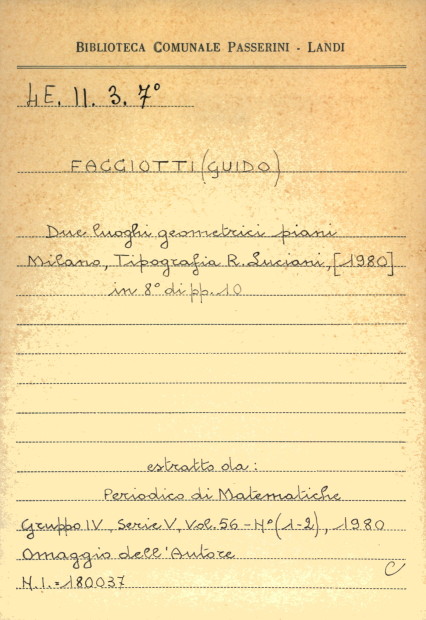 BIBLIOTECA COMUNALE PASSERINI - LANDI
4E. II. 3. 7°
FAGGIOTTI (GUIDO)
Due luoghi geometrici piani
Milano, Tipografia R. Luciani, [1980]
in 8° di pp. 10
estratto da:
Periodico di Matematiche
Gruppo IV, Serie V, Vol. 56 - N° (1-2), 1980
Omaggio dell'Autore
C
N.I. = 180037